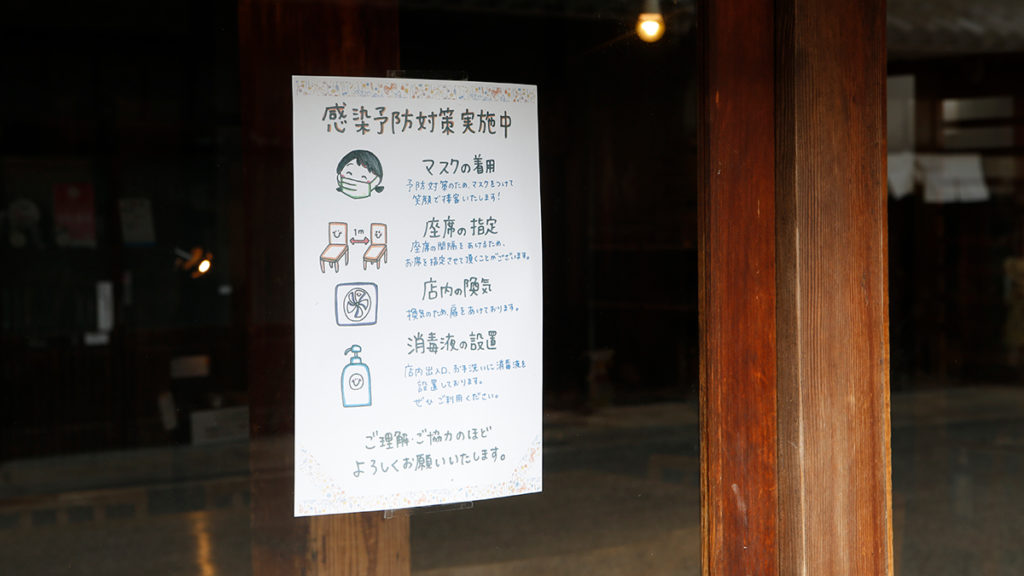 感染予防対策実施中
マスクの着用
予防対策のため、マスクをつけて
笑顔で接客いたします!
1m
座席の指定
座席の間隔をあけるため、
お席を指定させて頂くことがございます。
店内の換気
換気のため、扉をあけております。
消毒液の設置
店内出入口、お手洗いに消毒液を
設置しております。
ぜひご利用ください。
ご理解・ご協力のほど
よろしくお願いいたします。